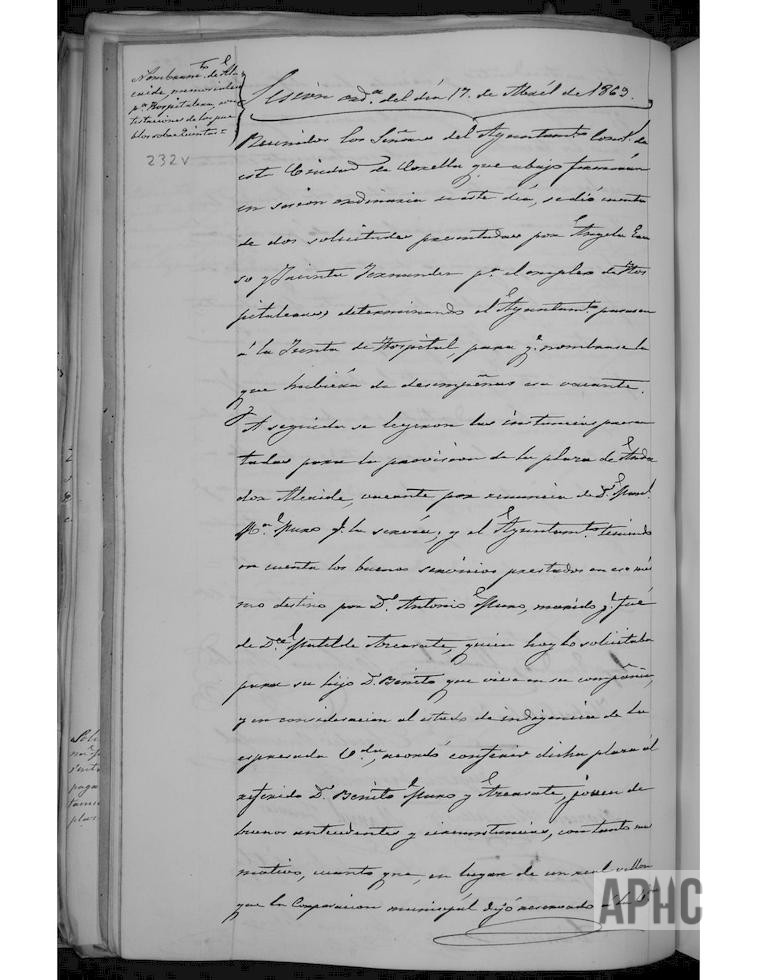 Nombram.to de Al
caide, memoriales
p.a Hospitalera, con
testaciones de los pue
blos sobre Quintas =
232v
Sesion ord.a del dia 17. de Abril de 1863.
Reunidos los Señores del Ayuntam.to Const.l de
esta Ciudad de que abajo firmarán
en sesion ordinaria de este dia, se dió cuenta
de dos solicitudes presentadas por Angela
so y Jacinta Fernandez p.a el empleo de Hos
pitaleras, determinando el Ayuntam.to pasasen
á la Junta de Hospital para q.e nombrase la
que hubiera de desempeñar esa vacante.
A seguida se leyeron las instancias presen
tadas para la provision de la plaza de Anda
dor Alcaide, vacante por renuncia de D. Man.l
M.a Muro q.e la servia; y el Ayuntam.to teniendo
en cuenta los buenos servicios prestados en ese mis
mo destino por D. Antonio Muro, marido q.e fué
de D.a Matilde Azcarate, quien hoy lo solicitaba
para su hijo D. Benito que vive en su compañia,
y en consideracion al estado de indigencia de la
espresada V.da, acordó conferir dicha plaza al
referido D. Benito Muro y Azcarate, joven de
buenos antecedentes y circunstancias, con tanto mas
motivo, cuanto que, en lugar de un real vellon
que la Corporacion municipal dejó
APHC